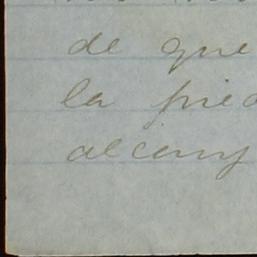 de que
la pied
alcanz